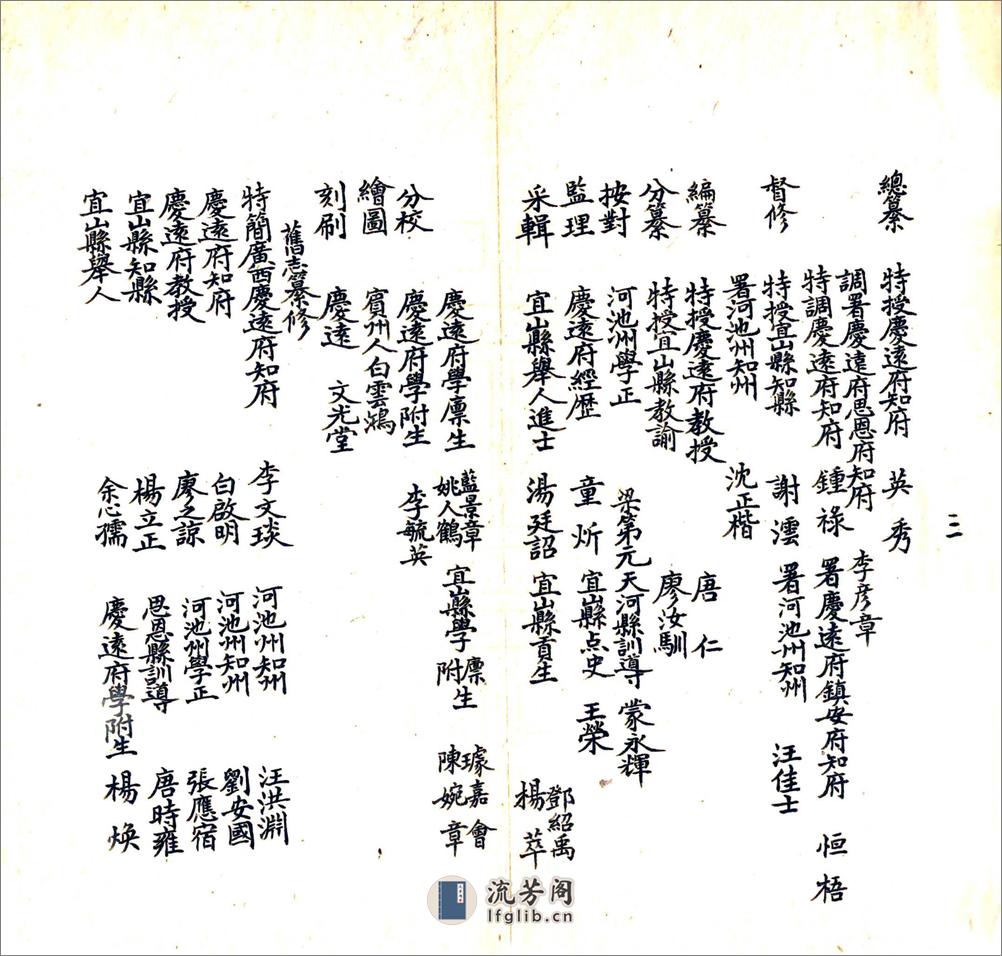 二
總纂 特授慶遠府知府 英秀
調署慶遠府思恩府知府 李彦章
特調慶遠府知府 鍾祿 署慶遠府鎮安府知府 恒梧
督修 特授宜山縣知縣 謝澐 署河池州知州 汪佳士
署河池州知州 沈正楷
編纂 特授慶遠府教授 唐仁
分纂 特授宜山縣教諭 廖汝馴
按對 河池州學正 梁第元 天河縣訓導 蒙永輝
監理 慶遠府經歷 童炘 宜山縣点史 王榮
采輯 宜山縣舉人進士 湯廷詔 宜山縣貢生 鄧紹禹 楊萃
分校 慶遠府學廪生 藍景章 姚人鶴 宜山縣學廪附生 璩嘉會 陳婉章
慶遠府學附生 李毓英
繪圖 賓州人白雲鴻
刻刷 慶遠 文光堂
舊志纂修
特簡廣西慶遠府知府 李文琰 河池州知州 汪洪淵
慶遠府知府 白啟明 河池州知州 劉安國
慶遠府教授 廖之諒 河池州學正 張應宿
宜山縣知縣 楊立正 思恩縣訓導 唐時雍
宜山縣舉人 余心孺 慶遠府學附生 楊煥
流芳阁
lfglib.cn